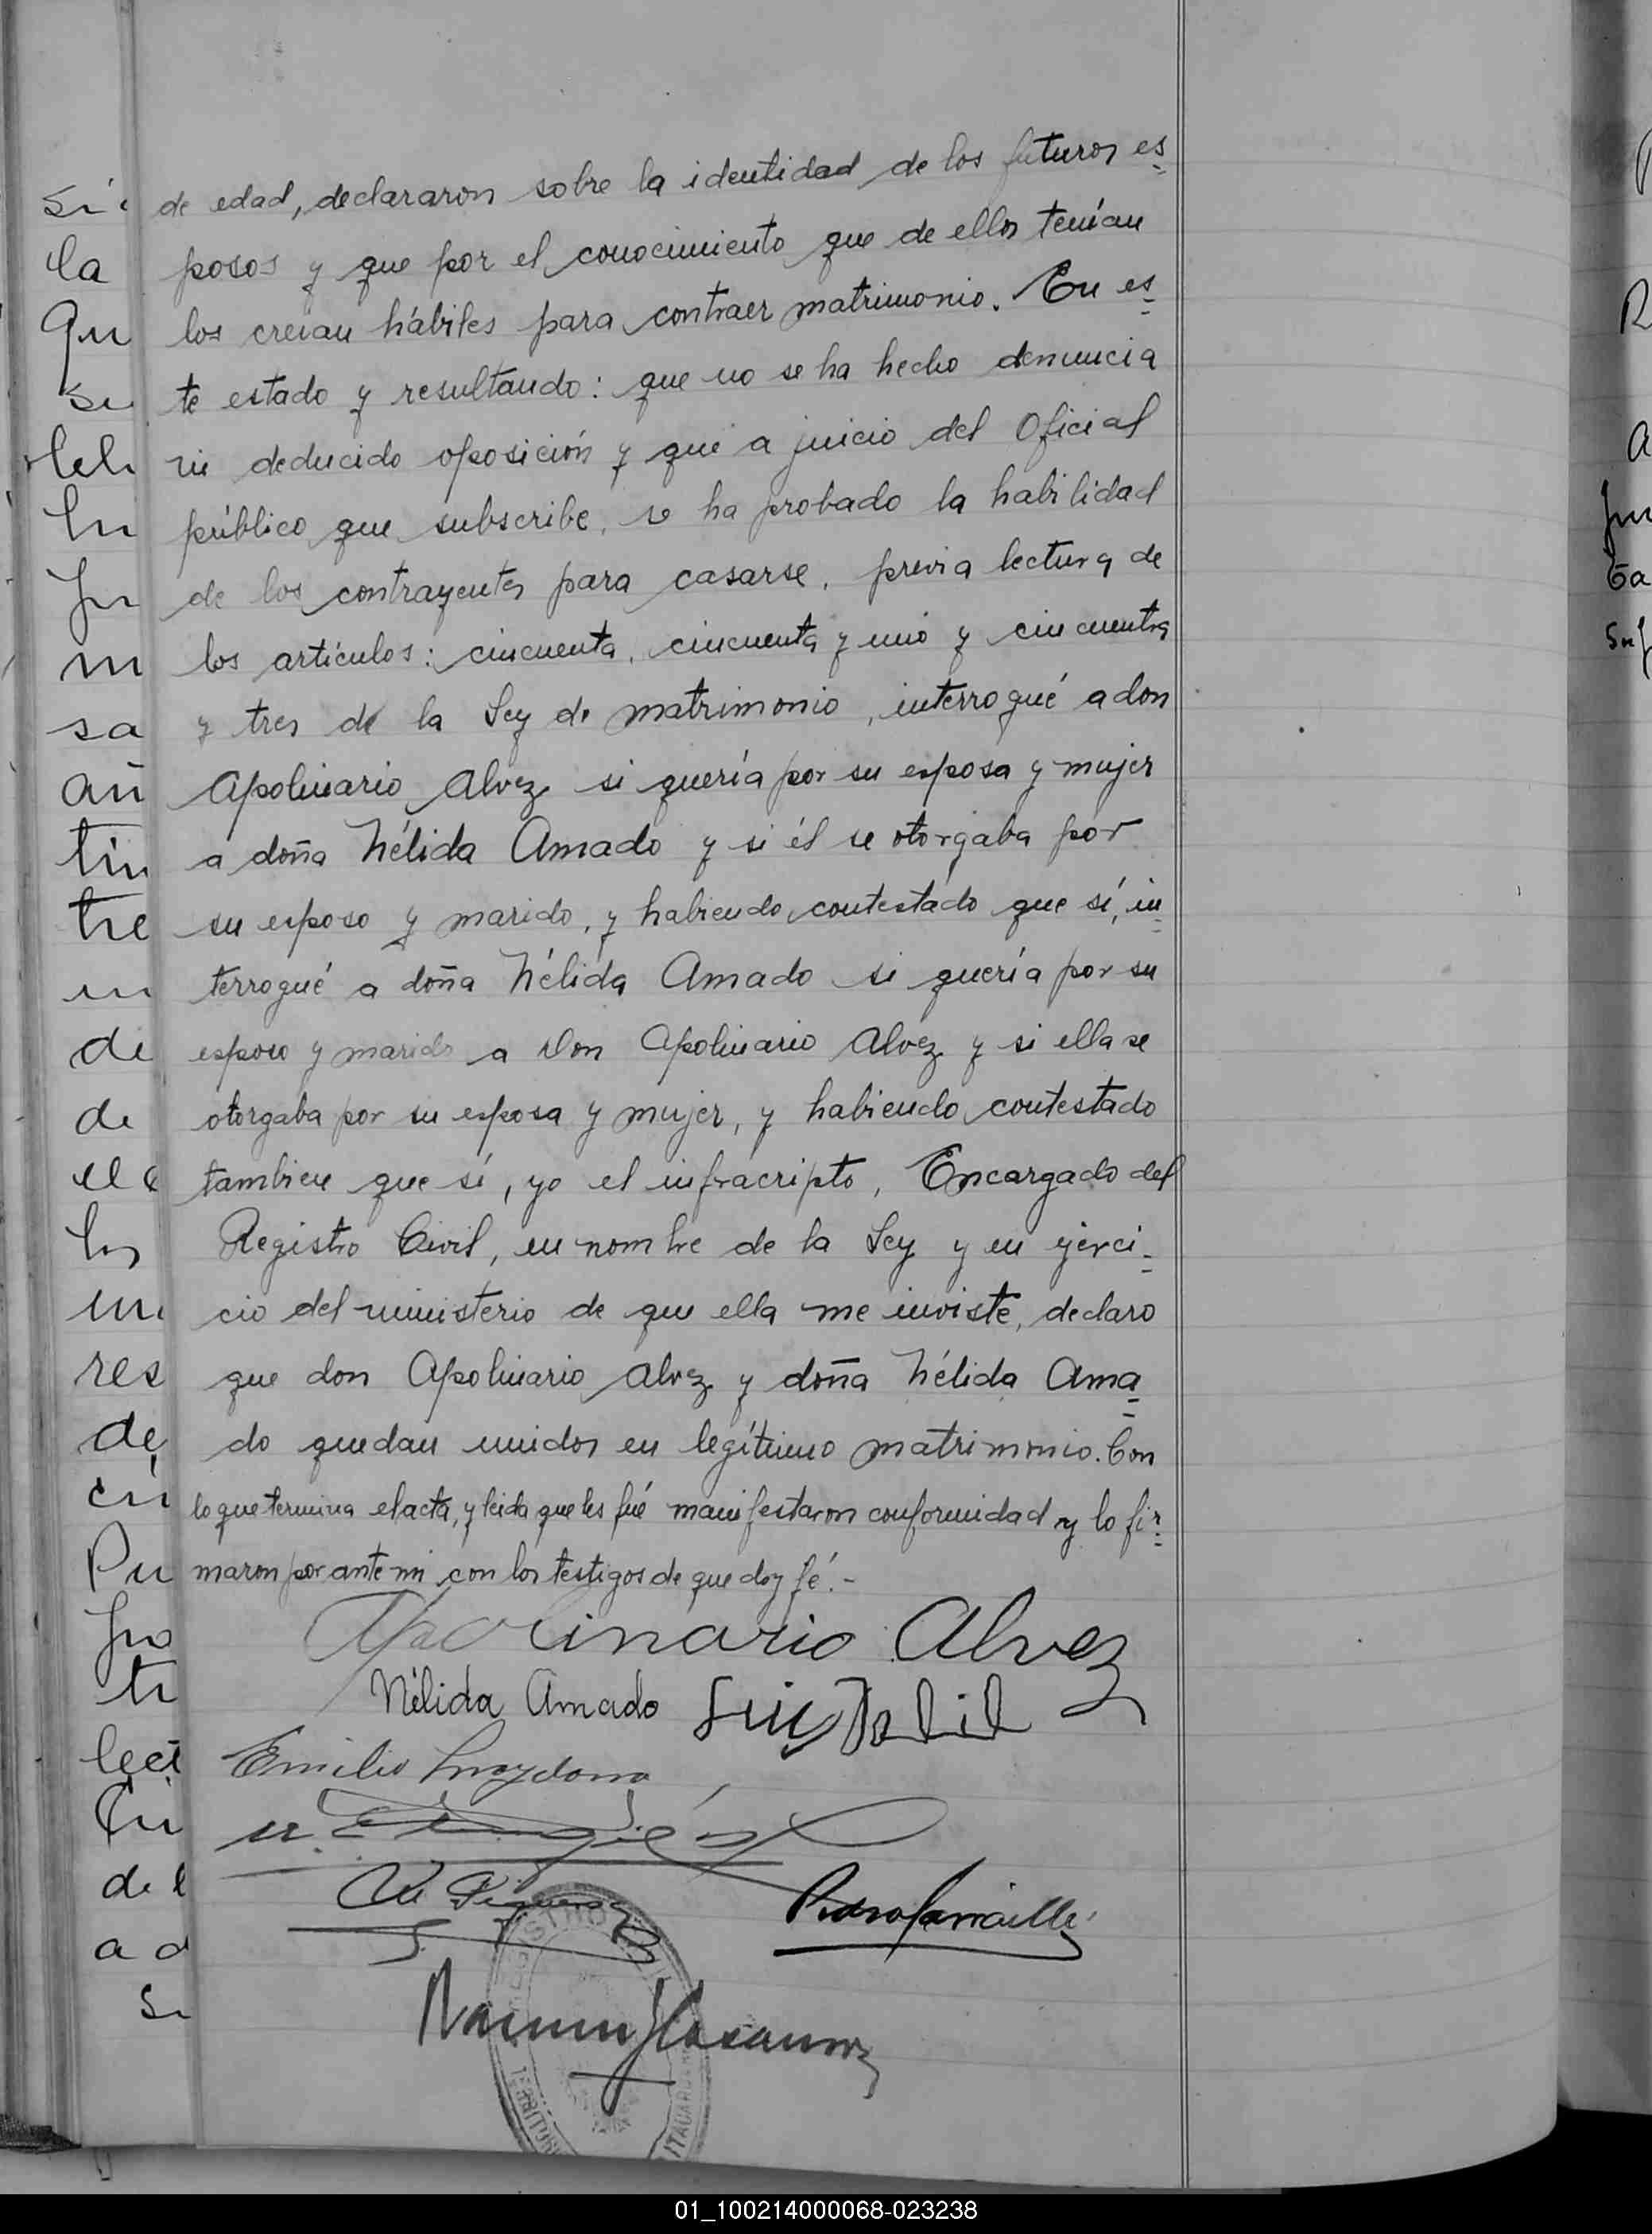 de edad, declararon sobre la identidad de los futuros es
posos y que por el conocimiento que de ellos tenían
los creían hábiles para contraer matrimonio. En es
te estado y resultando: que no se ha hecho denuncia
ni deducido oposición y que a juicio del Oficial
público que subscribe, se ha probado la habilidad
de los contrayentes para casarse, previa lectura de
los artículos: cincuenta, cincuenta y uno y cincuenta
y tres de la Ley de matrimonio, interrogué a don
Apolinario Alvez si quería por su esposa y mujer
a doña Nélida Amado y si él se otorgaba por
su esposo y marido, y habiendo contestado que sí, in
terrogué a doña Nélida Amado si quería por su
esposo y marido a Don Apolinario Alvez y si ella se
otorgaba por su esposa y mujer, y habiendo contestado
tambien que sí, yo el infracripto, Encargado del
Registro Civil, en nombre de la Ley y en ejerci-
cio del ministerio de que ella me inviste, declaro
que don Apolinario Alvez y doña Nélida Ama
do quedan unidos en legítimo matrimonio. Con
lo que termina el acta, y leida que les fué manifestaron conformidad y lo fir
maron por ante mi con los testigos de que doy fé.-
Apolinario Alvez
Nélida Amado Luis
Emilio
Pedro
Ramon
01_100214000068-023238